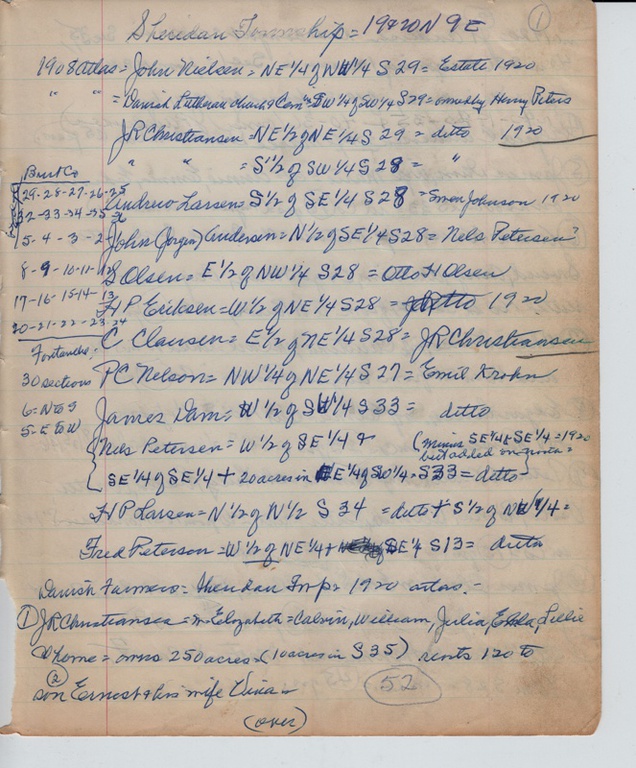 ①
Sheridan Township = 19+20N 9E
1908 atlas = John Nielsen = NE 1/4 of NW 1/4 S 29 = Estate 1920
" " = Danish Lutheran church & Cem = SW 1/4 of SW 1/4 S29 = owned by Henry Peters
JR Christiansen = NE 1/2 of NE 1/4 S 29 = ditto 1920
" " = S 1/2 of SW 1/4 S 28 = "
Burt Co
29-28-27-26-25
Andrew Larsen = S 1/2 of SE 1/4 S28 = Simon Johnson 1920
32-33-34-35-36
5-4-3-2-1
John (Jorgin) Andersen = N 1/2 of SE 1/4 S28 = Nels Petersen?
8-9-10-11-12
S Olsen = E 1/2 of NW 1/4 S28 = Otto H Olsen
17-16-15-14-13
H P Ericksen = W 1/2 of NE 1/4 S28 = ditto 1920
20-21-22-23-24
C Clausen = E 1/2 of NE 1/4 S28 = JR Christiansen
Fontanelle:
30 sections
PC Nelson = NW 1/4 of NE 1/4 S 27 = Emil Krohn
6 = N to S
5 = E to W
James Dam = W 1/2 of SW 1/4 S33 = ditto
Nels Petersen = W 1/2 of SE 1/4 + (minus SE 1/4 of SE 1/4 = 1920
but added
SE 1/4 of SE 1/4 + 20 acres in NE 1/4 of SW 1/4 = S33 = ditto
H P Larsen = N 1/2 of W 1/2 S 34 = ditto + S 1/2 of NW 1/4 =
Fred Peterson = W 1/2 of NE 1/4 + SE 1/4 S13 = ditto
Danish Farmers = Sheridan Twp = 1920 atlas. -
① JR Christiansen = m Elizabeth = Calvin, William, Julia, Ella, Lillie
@ home = owns 250 acres = (10 acres in S 35) rents 120 to
② son Ernest & his wife Elvina =
52
(over)